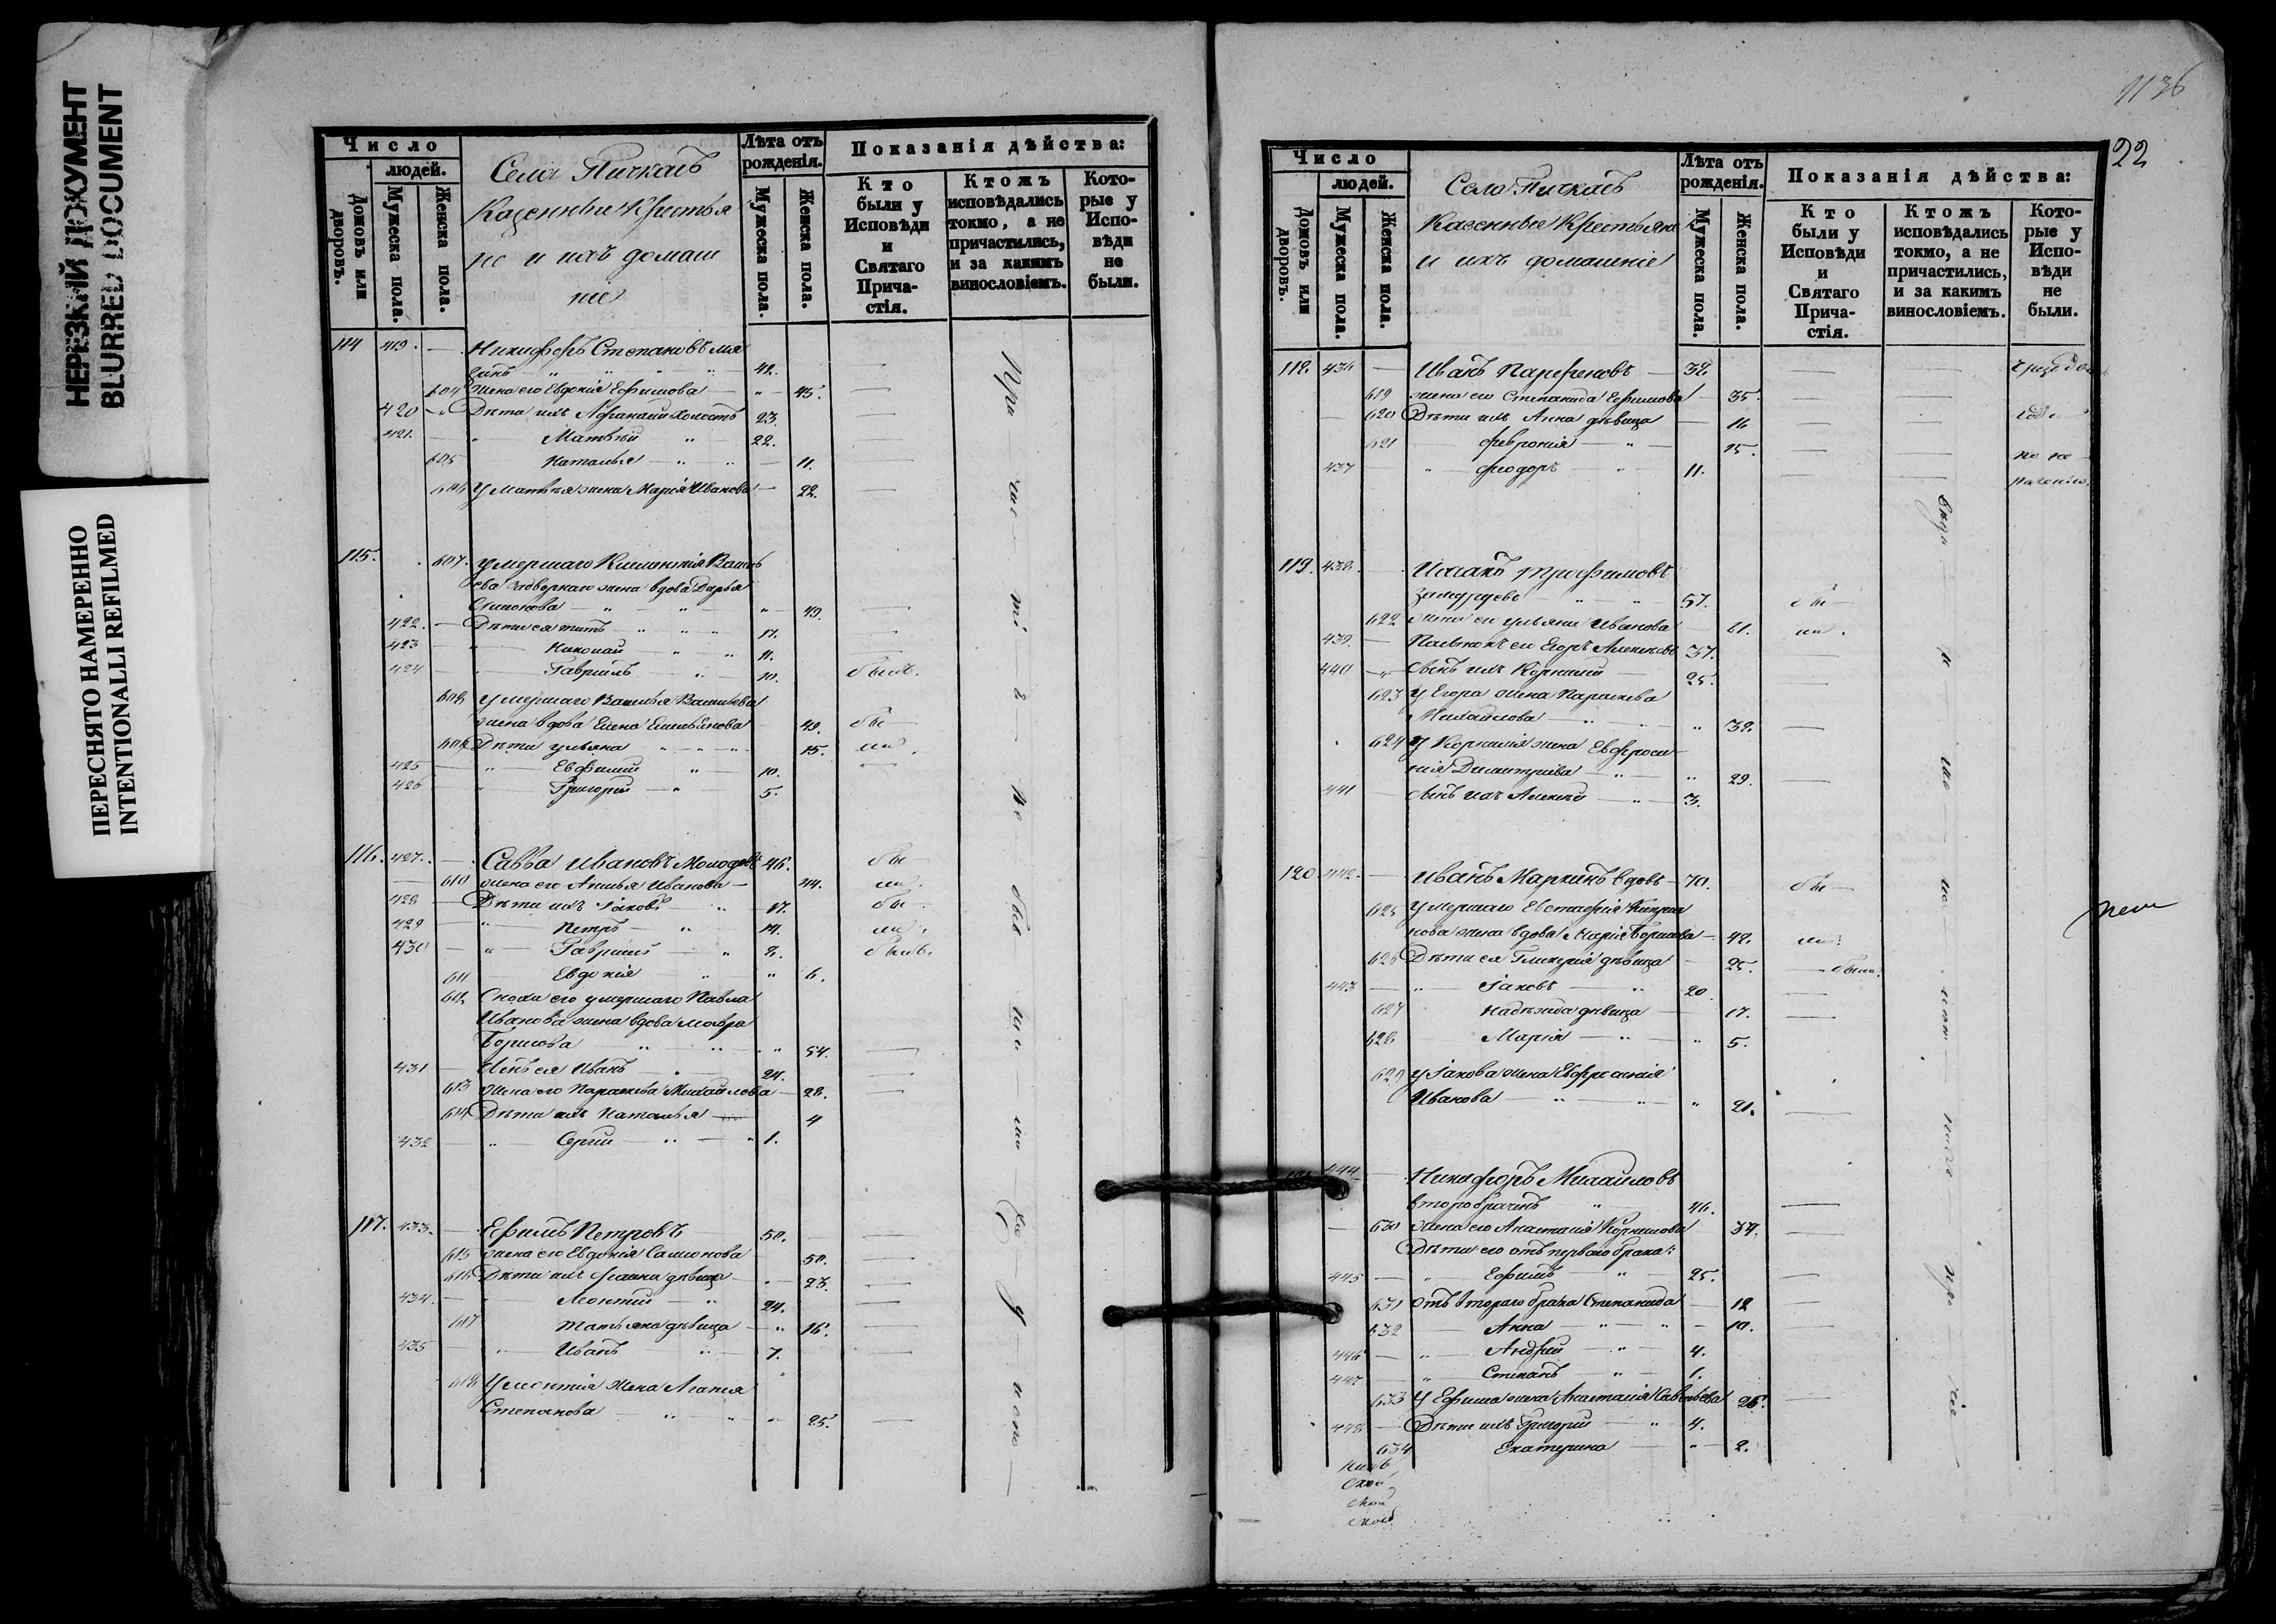 НЕРЕЗКИЙ ДОКУМЕНТ
BLURRED DOCUMENT
ПЕРЕСНЯТО НАМЕРЕННО
INTENTIONALLI REFILMED
Число
людей.
Домовъ или дворовъ.
Мужеска пола.
Женска пола.
Села Пичкасъ
Казенные Крестья
не и ихъ домаш
ніе
Лѣта отъ рожденія.
Мужеска пола.
Женска пола.
Показанія дѣйства:
Кто были у Исповѣди и Святаго Причастія.
Ктожъ исповѣдались токмо, а не причастились, и за какимъ винословіемъ.
Которые у Исповѣди не были.
114 419. Никифоръ Степановъ
42.
604 жена его Евдокія Ефимова 45.
420 Дѣти ихъ Афанасій холостъ 23.
421. Матвѣй 22.
605 Наталья 11.
606 У Матвѣя жена Марія Иванова 22.
115. 607. умершаго Климентія Василь
ева жена вдова Дарья
49.
422. Дѣти ея Титъ 17.
423 Николай 11.
424 Гавріилъ 10. былъ.
608 умершаго Василья Васильева
жена вдова Елена Емельянова 49. бы
609 Дѣти Ульяна 15. ли.
425 Евфимій 10.
426 Григорій 5.
116. 427. Савва Ивановъ Молодовъ 46. бы
610 жена его Анисья Иванова 44. ли.
428 Дѣти ихъ Іаковъ 17. бы
429 Петръ 14. ли.
430 Гавріилъ 8. былъ.
611 Евдокія 6.
612 Сноха его умершаго Павла
Иванова жена вдова Мавра
Борисова 54.
431 Сынъ ея Иванъ 24.
613 Жена его Параскева Михайлова 28.
614 Дѣти ихъ Наталья 4
432 Сергій 1.
117. 433. Ефимъ Петровъ 50.
615 жена его Евдокія Самсонова 50.
616 Дѣти ихъ дѣвица 23.
434. Леонтій 24.
617 Татьяна дѣвица 16.
435 Иванъ 7.
618 У Леонтія жена Агапія
Степанова 25.
1136
22
Число
людей.
Домовъ или дворовъ.
Мужеска пола.
Женска пола.
Села Пичкасъ
Казенные Крестьяне
и ихъ домашніе
Лѣта отъ рожденія.
Мужеска пола.
Женска пола.
Показанія дѣйства:
Кто были у Исповѣди и Святаго Причастія.
Ктожъ исповѣдались токмо, а не причастились, и за какимъ винословіемъ.
Которые у Исповѣди не были.
118. 436 Иванъ Парфеновъ 38.
619 жена его Степанида Ефимова 35.
620 Дѣти ихъ Анна дѣвица 16
621 Февронія 15.
437 Феодоръ 11.
119. 438. Исаакъ Трофимовъ
57. бы
622 жена его Ульяна Иванова 61. ли.
439. Егоръ Алексѣевъ 37.
440 Сынъ ихъ Корнилій 25.
623 У Егора жена Параскева
Михайлова 38.
624 У Корнилія жена Евфроси
нія Димитріева 29.
441 Сынъ ихъ Алексѣй 3.
120. 442. Иванъ Маркинъ вдовъ 70. бы
625 Умершаго Евстафія Кипріа
нова жена вдова Марія Борисова 48. ли.
626 Дѣти ея Гликерія дѣвица 25. была.
443 Іаковъ 20
627 Надежда дѣвица 17.
628 Марія 5.
629 У Іакова жена Евфросинія
Иванова 21.
444 Никифоръ Михайловъ
второбрачный 46.
630 жена его Анастасія Корнилова 34.
Дѣти его отъ перваго брака:
445 Ефимъ 25.
631 Отъ втораго брака Степанида 12
632 Анна 10.
446 Андрей 4.
447 Степанъ 1.
633 У Ефима жена Анастасія Савельева 25.
448 Дѣти ихъ Григорій 4.
634 Екатерина 2.